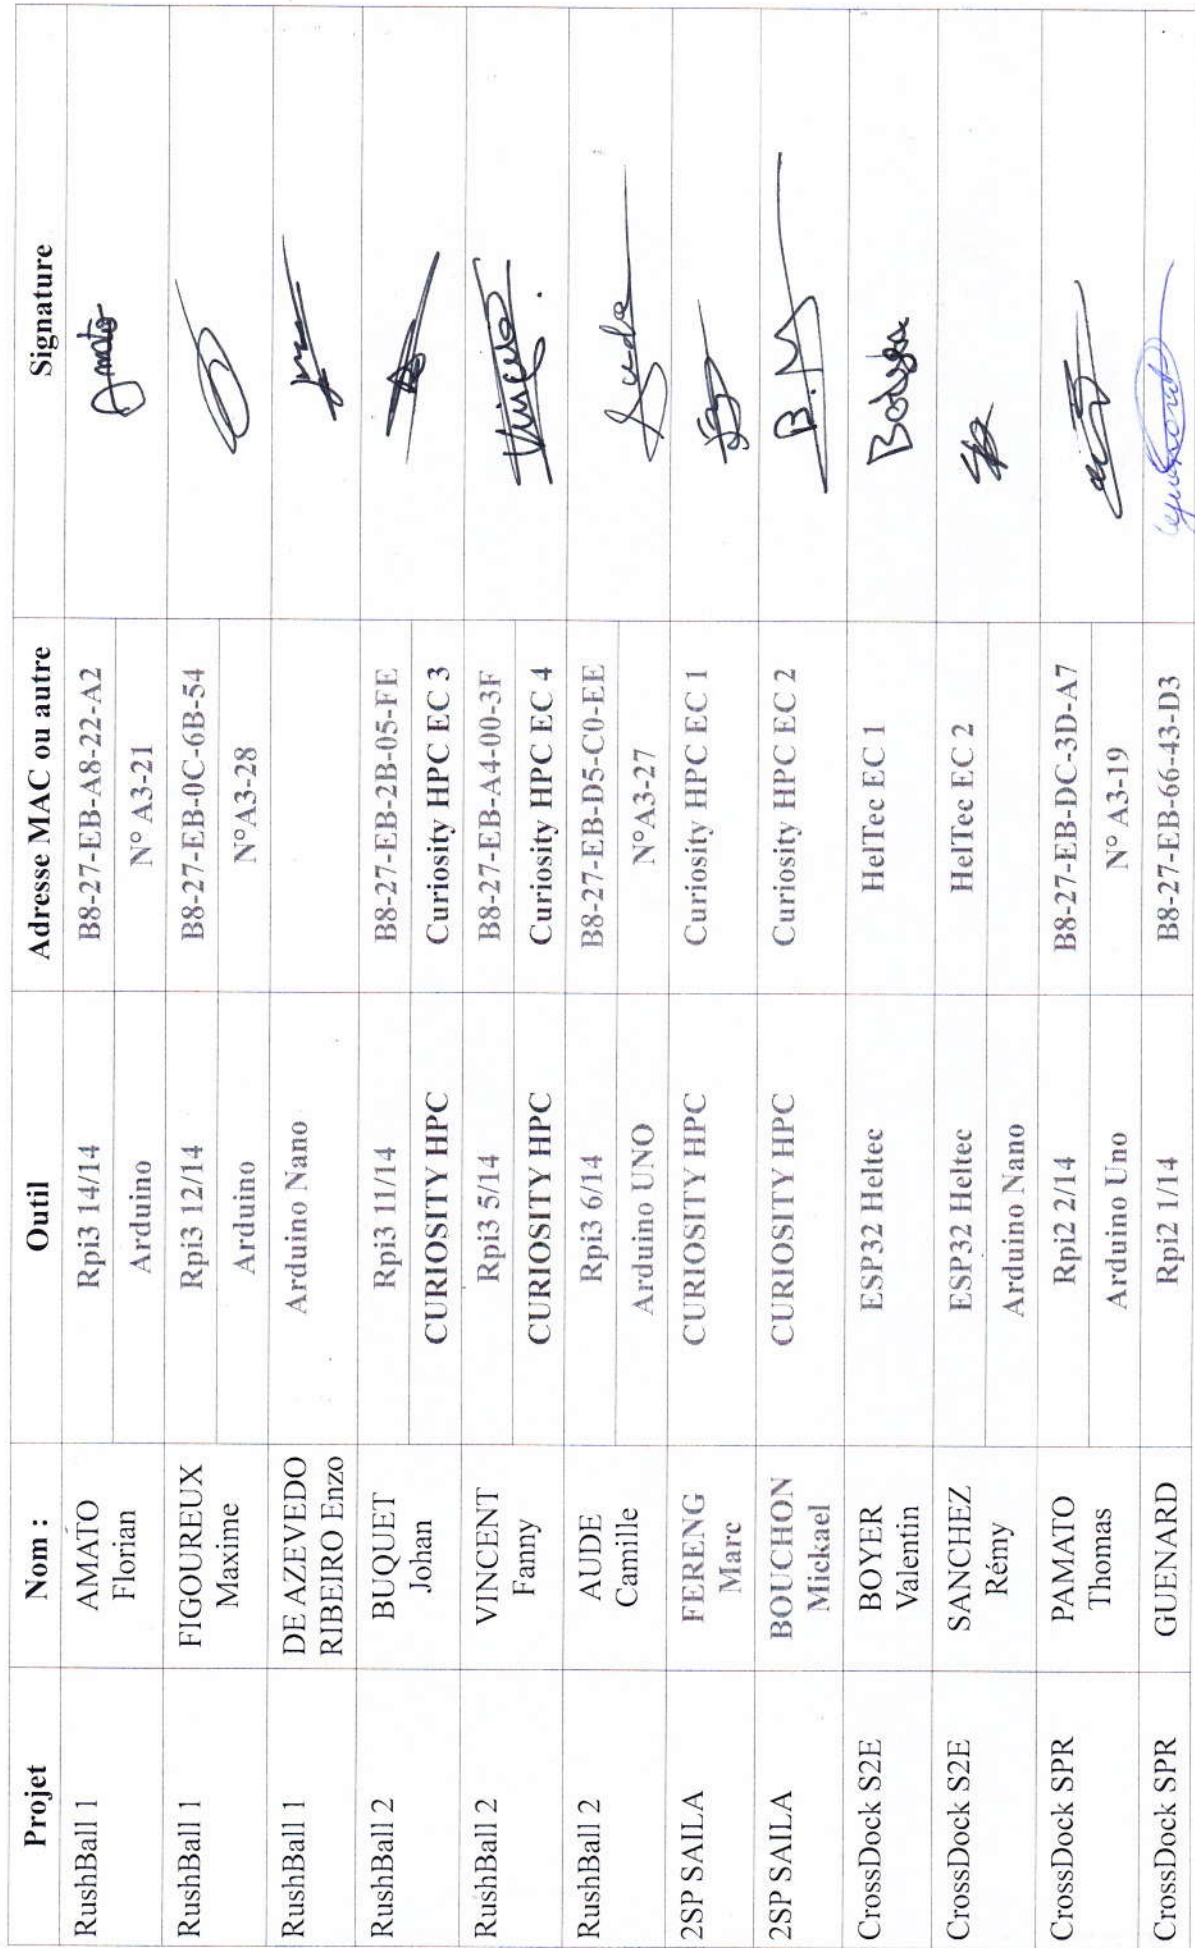 Projet Nom : Outil Adresse MAC ou autre Signature
RushBall 1 AMATO Rpi3 14/14 B8-27-EB-A8-22-A2 Amato
Florian Arduino N° A3-21
RushBall 1 FIGOUREUX Rpi3 12/14 B8-27-EB-0C-6B-54
Maxime Arduino N°A3-28
RushBall 1 DE AZEVEDO Arduino Nano
RIBEIRO Enzo
RushBall 2 BUQUET Rpi3 11/14 B8-27-EB-2B-05-FE
Johan CURIOSITY HPC Curiosity HPC EC 3
RushBall 2 VINCENT Rpi3 5/14 B8-27-EB-A4-00-3F Vincent
Fanny CURIOSITY HPC Curiosity HPC EC 4
RushBall 2 AUDE Rpi3 6/14 B8-27-EB-D5-C0-EE Aude
Camille Arduino UNO N°A3-27
2SP SAILA FERENG CURIOSITY HPC Curiosity HPC EC 1
Marc
2SP SAILA BOUCHON CURIOSITY HPC Curiosity HPC EC 2 B.M
Mickael
CrossDock S2E BOYER ESP32 Heltec HelTec EC 1 Boyer
Valentin
CrossDock S2E SANCHEZ ESP32 Heltec HelTec EC 2
Rémy Arduino Nano
CrossDock SPR PAMATO Rpi2 2/14 B8-27-EB-DC-3D-A7
Thomas Arduino Uno N° A3-19
CrossDock SPR GUENARD Rpi2 1/14 B8-27-EB-66-43-D3